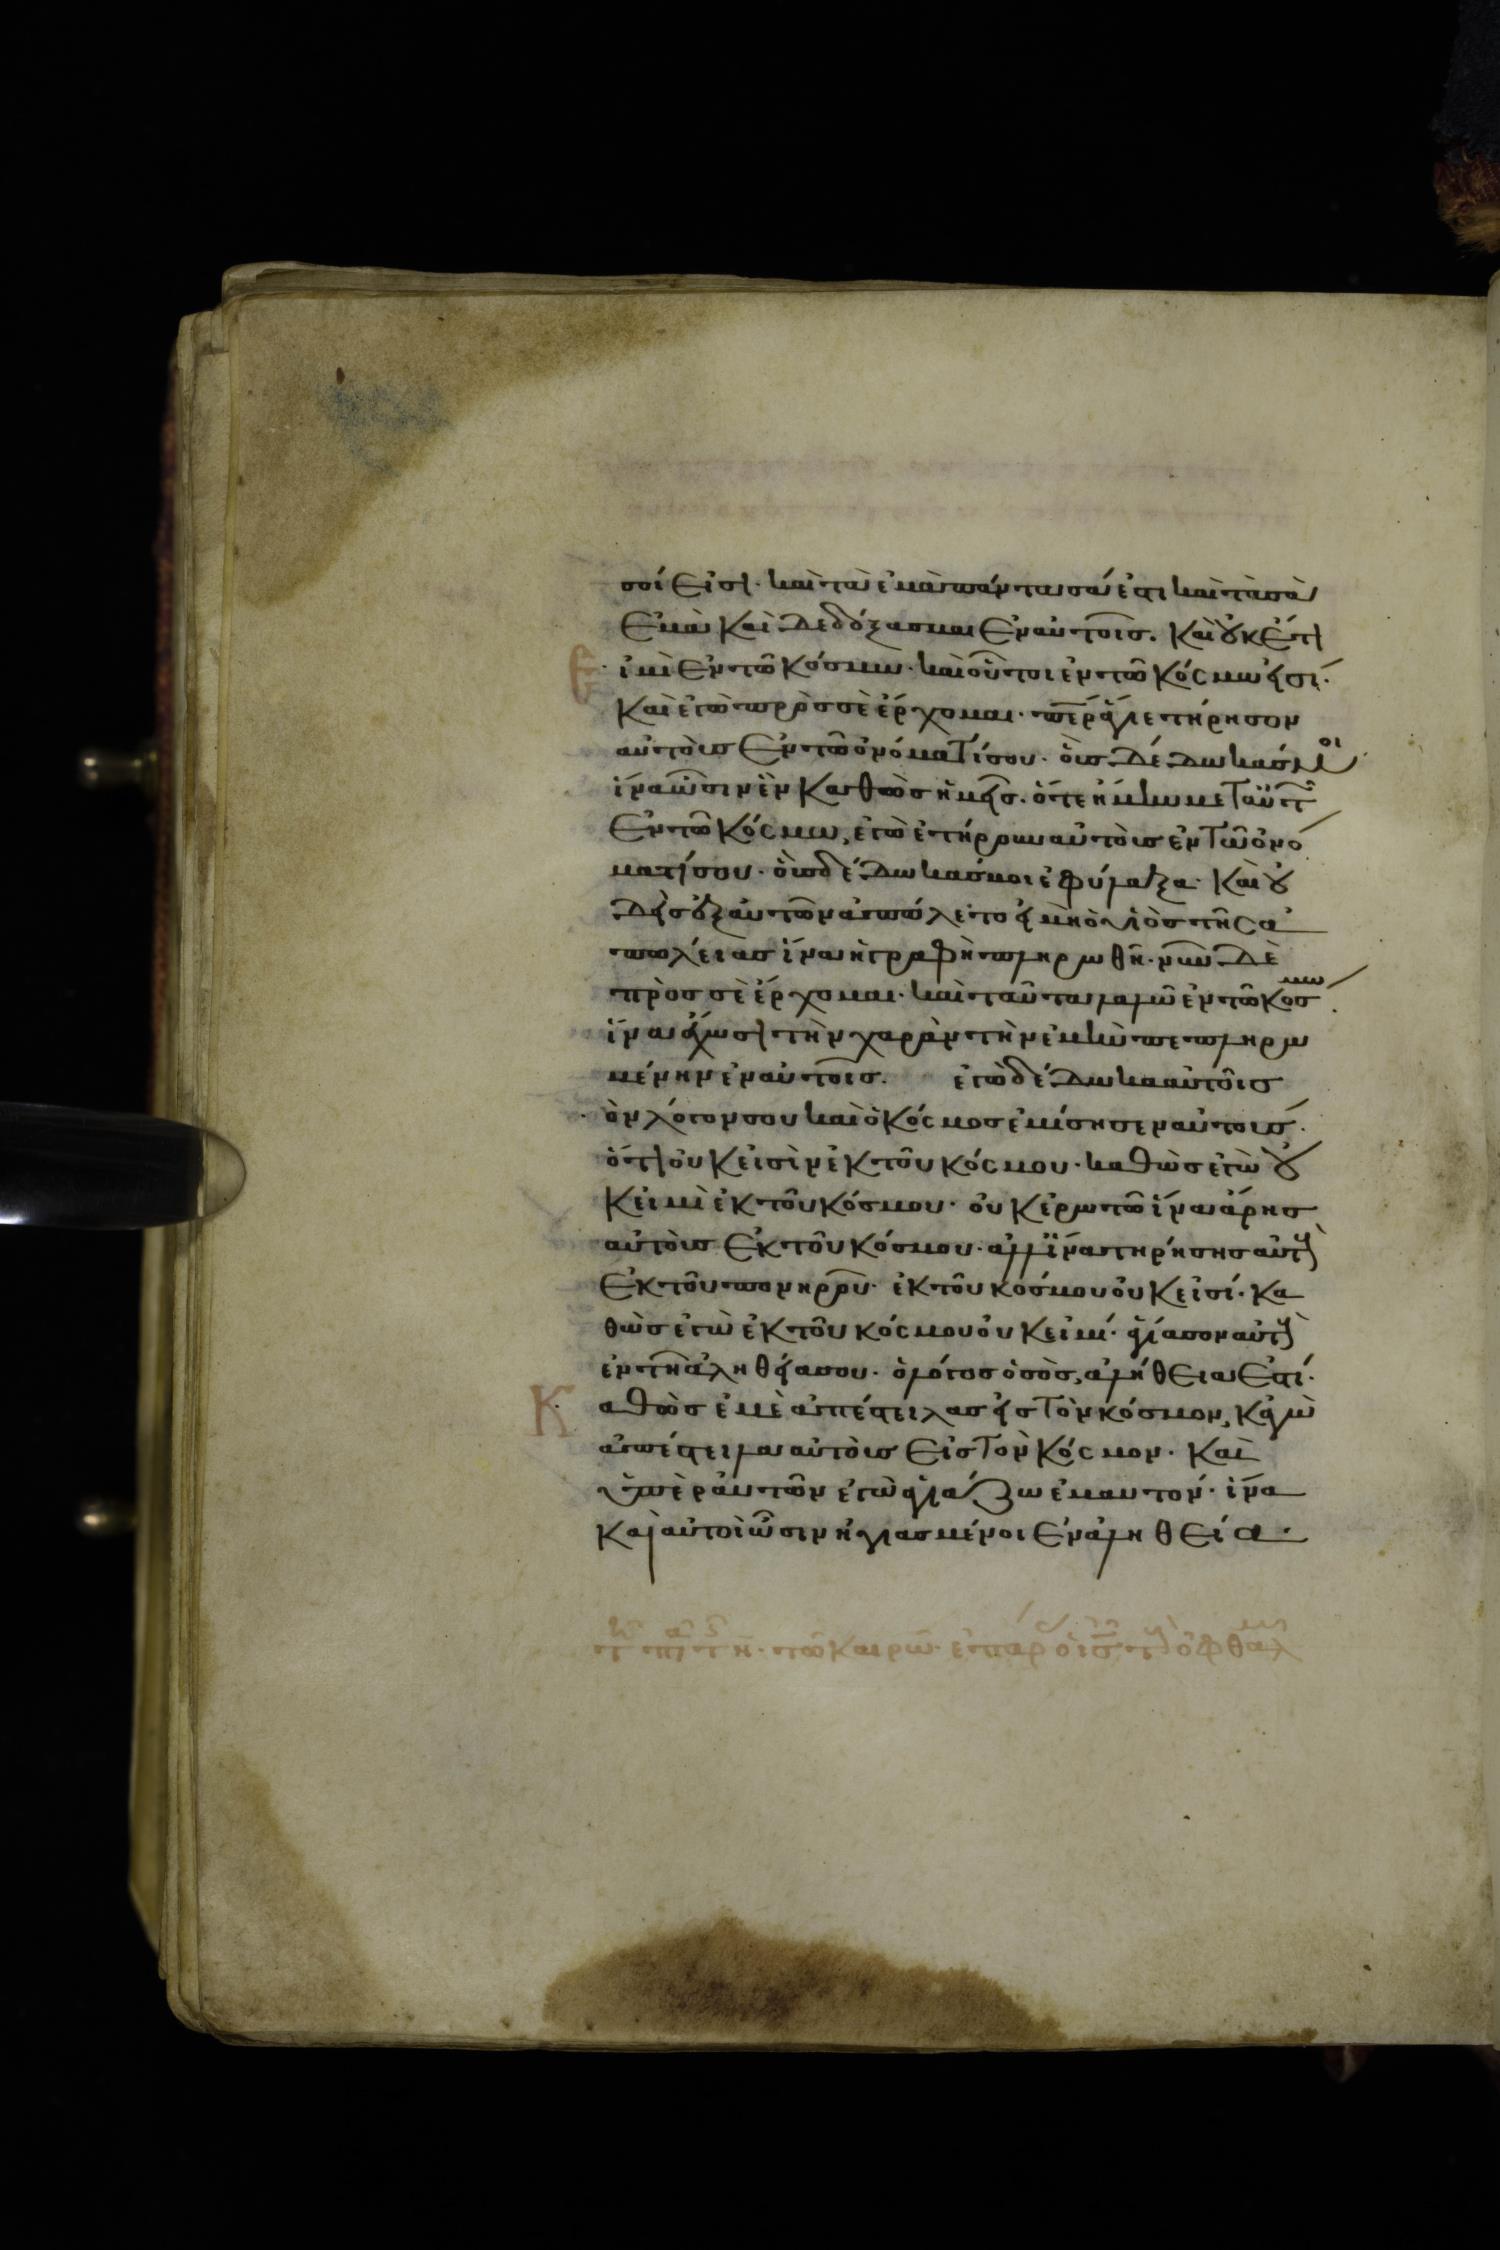 σοί εἰσι· καὶ τὰ ἐμὰ πάντα σά ἐστι καὶ τὰ σὰ
ἐμὰ καὶ δεδόξασμαι ἐν αὐτοῖς. καὶ οὐκέτι
εἰμὶ ἐν τῶ κόσμω· καὶ οὗτοι ἐν τῶ κόσμω εἰσί·
καὶ ἐγὼ πρὸς σὲ ἔρχομαι· περ ἅγιε τήρησον
αὐτοὺς ἐν τῶ ὀνόματί σου· οὓς δέδωκάς μοι
ἵνα ὦσιν ἓν καθὼς ἡμεῖς. ὅτε ἤμην μετ' αὐτ
ἐν τῶ κόσμω, ἐγὼ ἐτήρουν αὐτοὺς ἐν τῶ ὀνό
ματί σου· οὓς δέδωκάς μοι ἐφύλαξα· καὶ οὐ
δεὶς ἐξ αὐτῶν ἀπώλετο εἰ μὴ ὁ υἱὸς τῆς ἀ
πωλείας ἵνα ἡ γραφὴ πληρωθῆ· νῦν δὲ
πρὸς σὲ ἔρχομαι· καὶ ταῦτα λαλῶ ἐν τῶ κόσμω·
ἵνα ἔχωσι τὴν χαρὰν τὴν ἐμὴν πεπληρω
μένην ἐν αὐτοῖς. ἐγὼ δέδωκα αὐτοῖς
τὸν λόγον σου καὶ ὁ κόσμος ἐμίσησεν αὐτούς·
ὅτι οὐκ εἰσὶν ἐκ τοῦ κόσμου· καθὼς ἐγὼ οὐ
κ εἰμὶ ἐκ τοῦ κόσμου· οὐκ ἐρωτῶ ἵνα ἄρης
αὐτοὺς ἐκ τοῦ κόσμου· ἀλλ' ἵνα τηρήσης αὐτοὺς
ἐκ τοῦ πονηροῦ· ἐκ τοῦ κόσμου οὐκ εἰσί· κα
θὼς ἐγὼ ἐκ τοῦ κόσμου οὐκ εἰμί· ἁγίασον αὐτοὺς
ἐν τῆ ἀληθεία σου· ὁ λόγος ὁ σὸς, ἀλήθεια ἐστί·
Καθὼς ἐμὲ ἀπέστειλας εἰς τὸν κόσμον, κἀγὼ
ἀπέστειλα αὐτοὺς εἰς τὸν κόσμον· καὶ
ὑπὲρ αὐτῶν ἐγὼ ἁγιάζω ἐμαυτόν· ἵνα
καὶ αὐτοὶ ὦσιν ἡγιασμένοι ἐν ἀληθεία·
τῶ καιρῶ· ἐπάρ ὁ ις τοὺς ὀφθαλμ